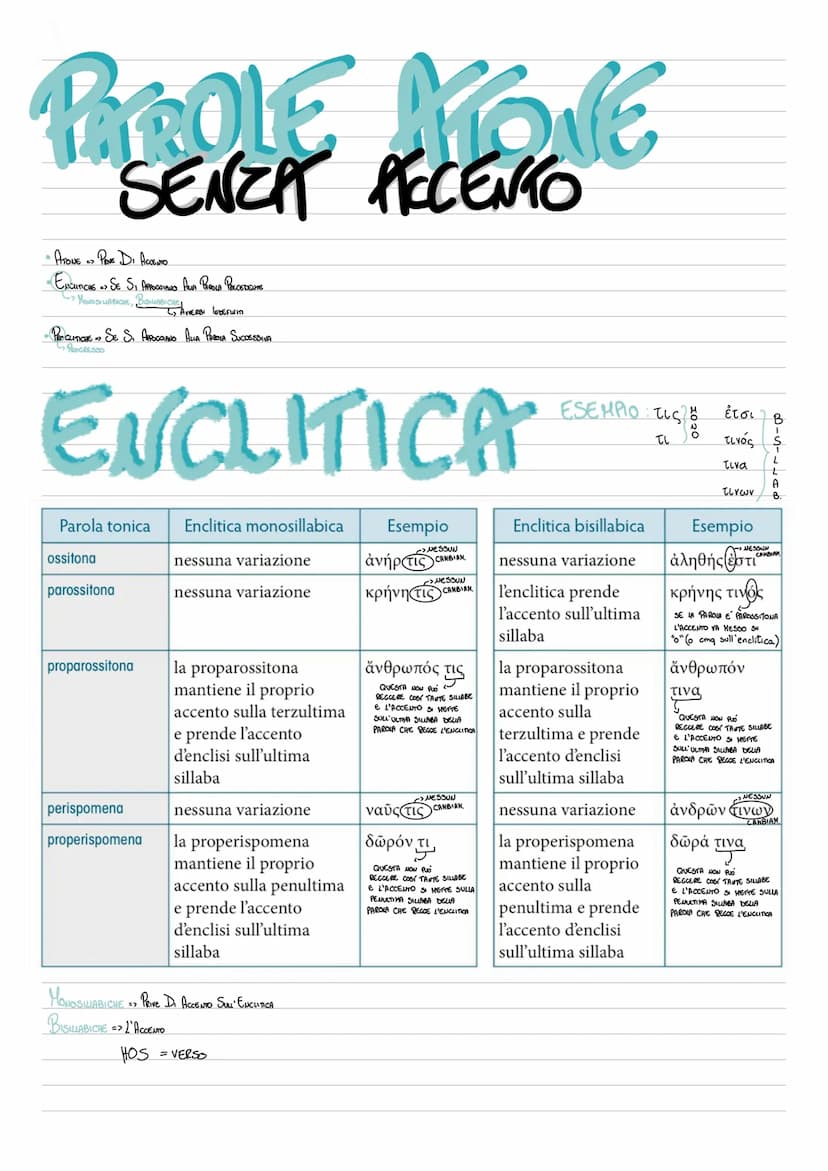 PAROLE ATONE
SENZA ACCENTO
• ATONE => PRIVE DI ACCENTO
• ENCLITICHE => SE SI APPOGGIANO ALLA PAROLA PRECEDENTE
↳ MONOSILLABICHE, BISILLABICHE
↳ AVVERBI INDEFINITI
• PROCLITICHE => SE SI APPOGGIANO ALLA PAROLA SUCCESSIVA
↳ PROGRESSO
ENCLITICA
ESEMPIO: τις
τι
MONO
ἐτσι
τινός
τινα
τινων
BISILLAB.
Parola tonica Enclitica monosillabica Esempio
ossitona nessuna variazione ἀνήρ τις → NESSUN CAMBIAM.
parossitona nessuna variazione κρήνη τις → NESSUN CAMBIAM.
proparossitona la proparossitona ἄνθρωπός τις
mantiene il proprio
accento sulla terzultima
e prende l’accento
d’enclisi sull’ultima
sillaba
QUESTA NON PUÒ
REGGERE COSÌ TANTE SILLABE
E L'ACCENTO SI METTE
SULL'ULTIMA SILLABA DELLA
PAROLA CHE REGGE L'ENCLITICA
perispomena nessuna variazione ναῦς τις → NESSUN CAMBIAM.
properispomena la properispomena δῶρόν τι
mantiene il proprio
accento sulla penultima
e prende l’accento
d’enclisi sull’ultima
sillaba
QUESTA NON PUÒ
REGGERE COSÌ TANTE SILLABE
E L'ACCENTO SI METTE SULLA
PENULTIMA SILLABA DELLA
PAROLA CHE REGGE L'ENCLITICA
Enclitica bisillabica Esempio
nessuna variazione ἀληθής ἐστι → NESSUN CAMBIAM.
l’enclitica prende κρήνης τινός
l’accento sull’ultima
sillaba
SE LA PAROLA E' PAROSSITONA
L'ACCENTO VA MESSO SU
"o" (o cmq sull'enclitica)
la proparossitona ἄνθρωπόν
mantiene il proprio τινα
accento sulla
terzultima e prende
l’accento d’enclisi
sull’ultima sillaba
QUESTA NON PUÒ
REGGERE COSÌ TANTE SILLABE
E L'ACCENTO SI METTE
SULL'ULTIMA SILLABA DELLA
PAROLA CHE REGGE L'ENCLITICA
nessuna variazione ἀνδρῶν τινων → NESSUN CAMBIAM.
la properispomena δῶρά τινα
mantiene il proprio
accento sulla
penultima e prende
l’accento d’enclisi
sull’ultima sillaba
QUESTA NON PUÒ
REGGERE COSÌ TANTE SILLABE
E L'ACCENTO SI METTE SULLA
PENULTIMA SILLABA DELLA
PAROLA CHE REGGE L'ENCLITICA
MONOSILLABICHE => PRIVE DI ACCENTO SULL'ENCLITICA
BISILLABICHE => L'ACCENTO
HOS = VERSO